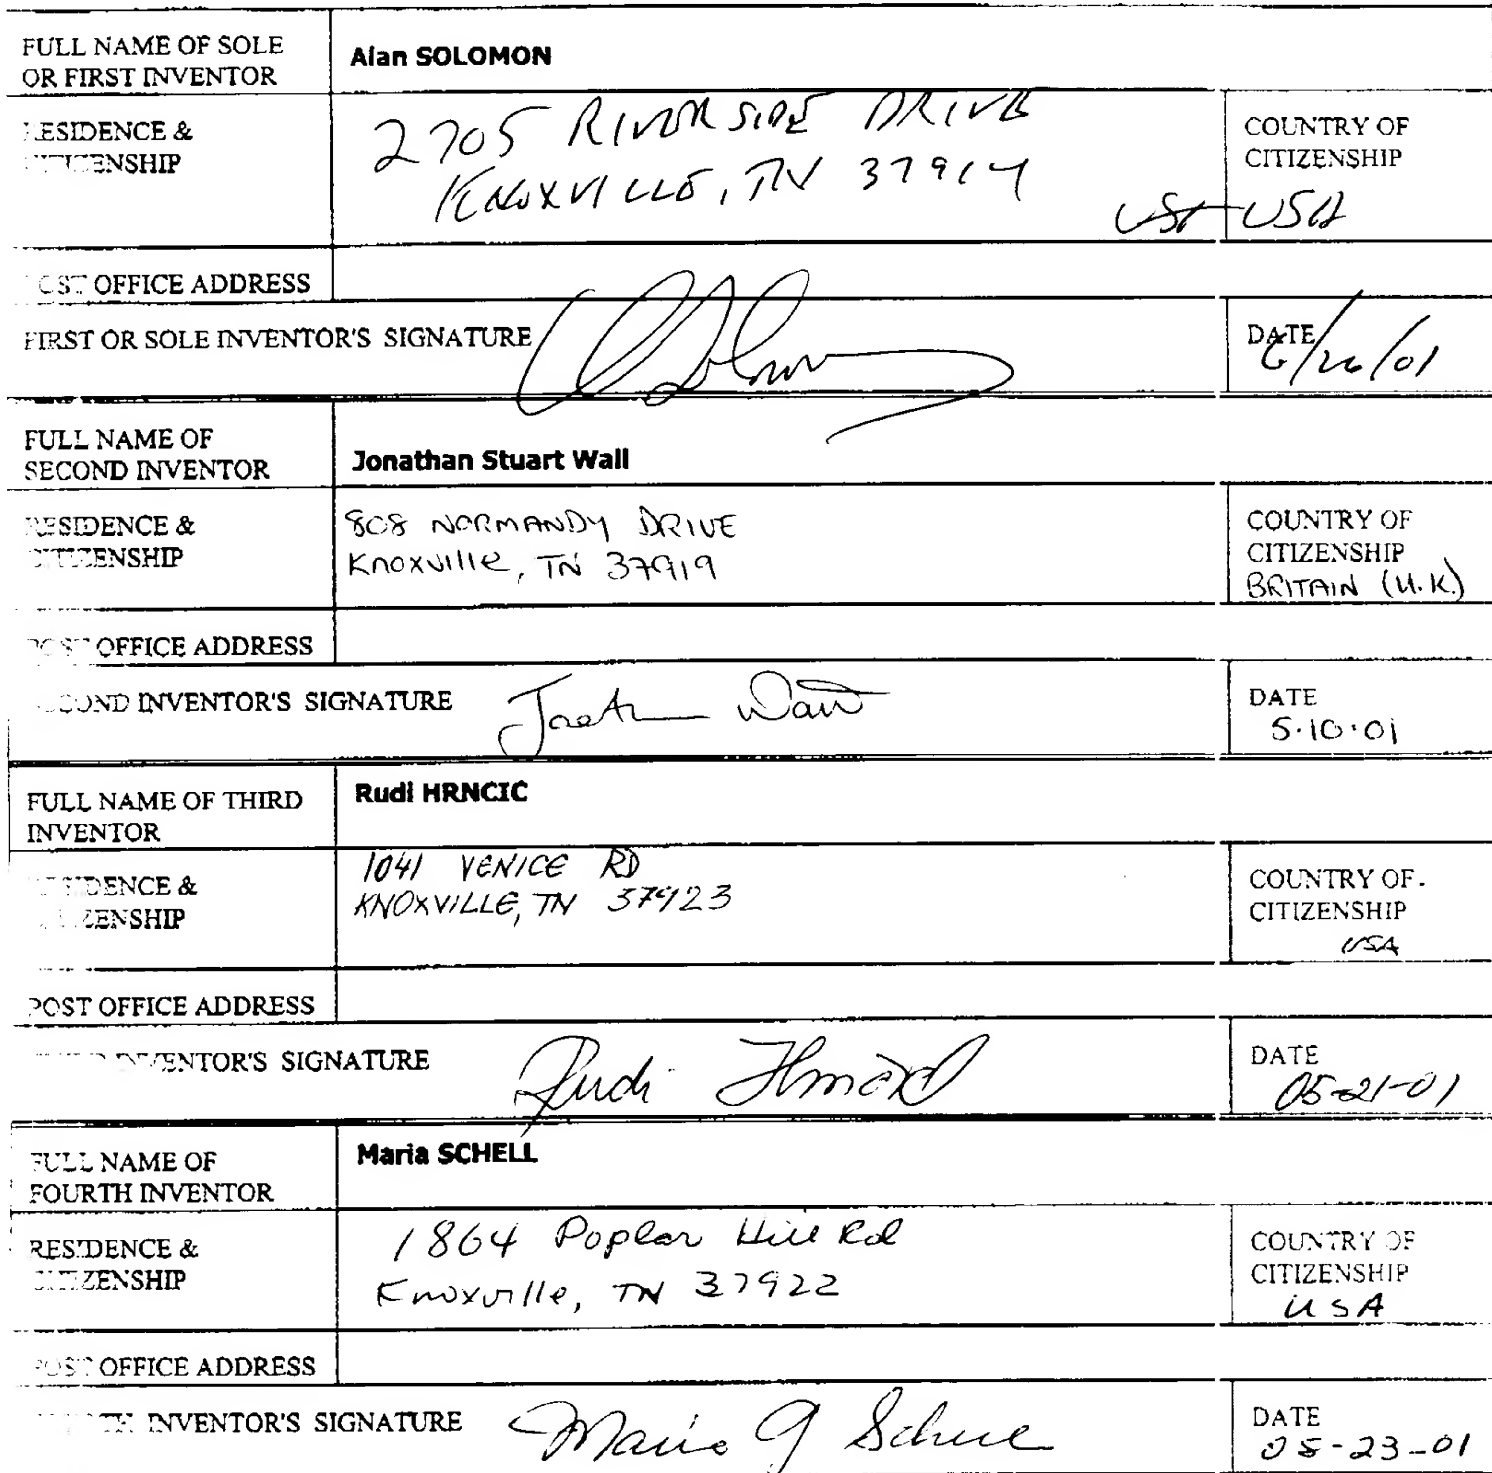 FULL NAME OF SOLE
OR FIRST INVENTOR
Alan SOLOMON
RESIDENCE &
CITIZENSHIP
2705 RIVERSIDE DRIVE
KNOXVILLE, TN 37914
COUNTRY OF
CITIZENSHIP
USA USA
POST OFFICE ADDRESS
FIRST OR SOLE INVENTOR'S SIGNATURE
DATE
6/26/01
FULL NAME OF
SECOND INVENTOR
Jonathan Stuart Wall
RESIDENCE &
CITIZENSHIP
808 NORMANDY DRIVE
Knoxville, TN 37919
COUNTRY OF
CITIZENSHIP
BRITAIN (U.K.)
POST OFFICE ADDRESS
SECOND INVENTOR'S SIGNATURE
DATE
5.10.01
FULL NAME OF THIRD
INVENTOR
Rudi HRNCIC
RESIDENCE &
CITIZENSHIP
1041 VENICE RD
KNOXVILLE, TN 37923
COUNTRY OF
CITIZENSHIP
USA
POST OFFICE ADDRESS
THIRD INVENTOR'S SIGNATURE
Rudi Hrncic
DATE
05-21-01
FULL NAME OF
FOURTH INVENTOR
Maria SCHELL
RESIDENCE &
CITIZENSHIP
1864 Poplar Hill Rd
Knoxville, TN 37922
COUNTRY OF
CITIZENSHIP
USA
POST OFFICE ADDRESS
FOURTH INVENTOR'S SIGNATURE
Maria J Schell
DATE
05-23-01